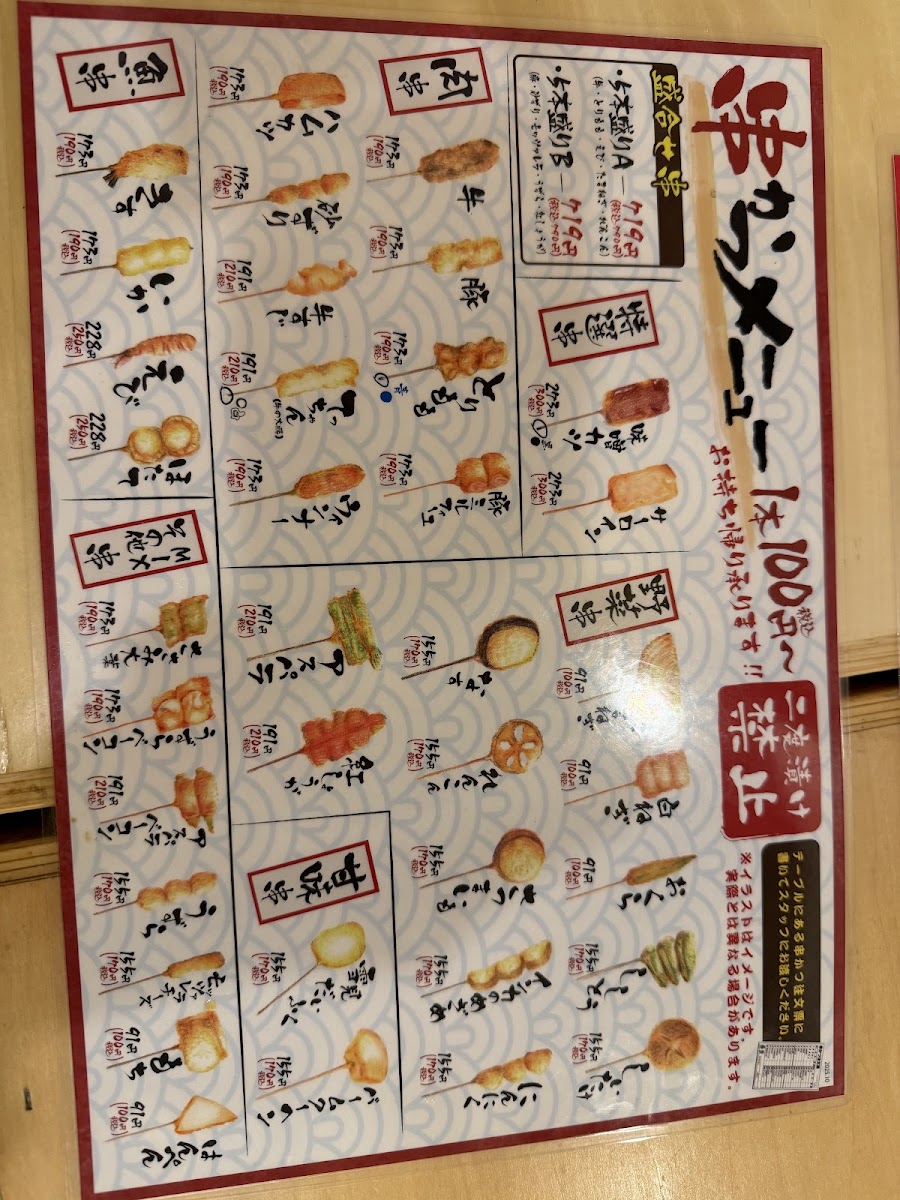 串かつメニュー 1本100円〜
税込
お持ち帰り承ります!!
二度漬け
禁止
テーブルにある串かつ注文票に
書いてスタッフにお渡しください。
※イラストはイメージです。
実際とは異なる場合があります。
2025.10
盛合せ串
・5本盛りA — 719円
(税込790円)
・5本盛りB — 719円
(税込790円)
特選串
味噌カツ
273円
(300円)
税込
サーロイン
273円
(300円)
税込
肉串
牛
173円
(190円)
税込
豚
173円
(190円)
税込
とりもも
173円
(190円)
税込
豚ニンニク
173円
(190円)
税込
ハムカツ
173円
(190円)
税込
砂ずり
173円
(190円)
税込
牛すじ
191円
(210円)
税込
てっちゃん
191円
(210円)
税込
ウィンナー
173円
(190円)
税込
魚串
きす
173円
(190円)
税込
いか
173円
(190円)
税込
えび
228円
(250円)
税込
ほたて
228円
(250円)
税込
野菜串
玉ねぎ
91円
(100円)
税込
白ねぎ
91円
(100円)
税込
おくら
91円
(100円)
税込
ししとう
155円
(170円)
税込
しいたけ
155円
(170円)
税込
なす
155円
(170円)
税込
れんこん
155円
(170円)
税込
さつまいも
155円
(170円)
税込
155円
(170円)
税込
にんにく
155円
(170円)
税込
アスパラ
191円
(210円)
税込
紅しょうが
191円
(210円)
税込
甘味串
雪見だいふく
155円
(170円)
税込
バームクーヘン
155円
(170円)
税込
MIX
その他串
ささみ大葉
173円
(190円)
税込
うずらベーコン
173円
(190円)
税込
アスパラベーコン
191円
(210円)
税込
うずら
155円
(170円)
税込
モッツァレラチーズ
155円
(170円)
税込
もち
91円
(100円)
税込
はんぺん
91円
(100円)
税込